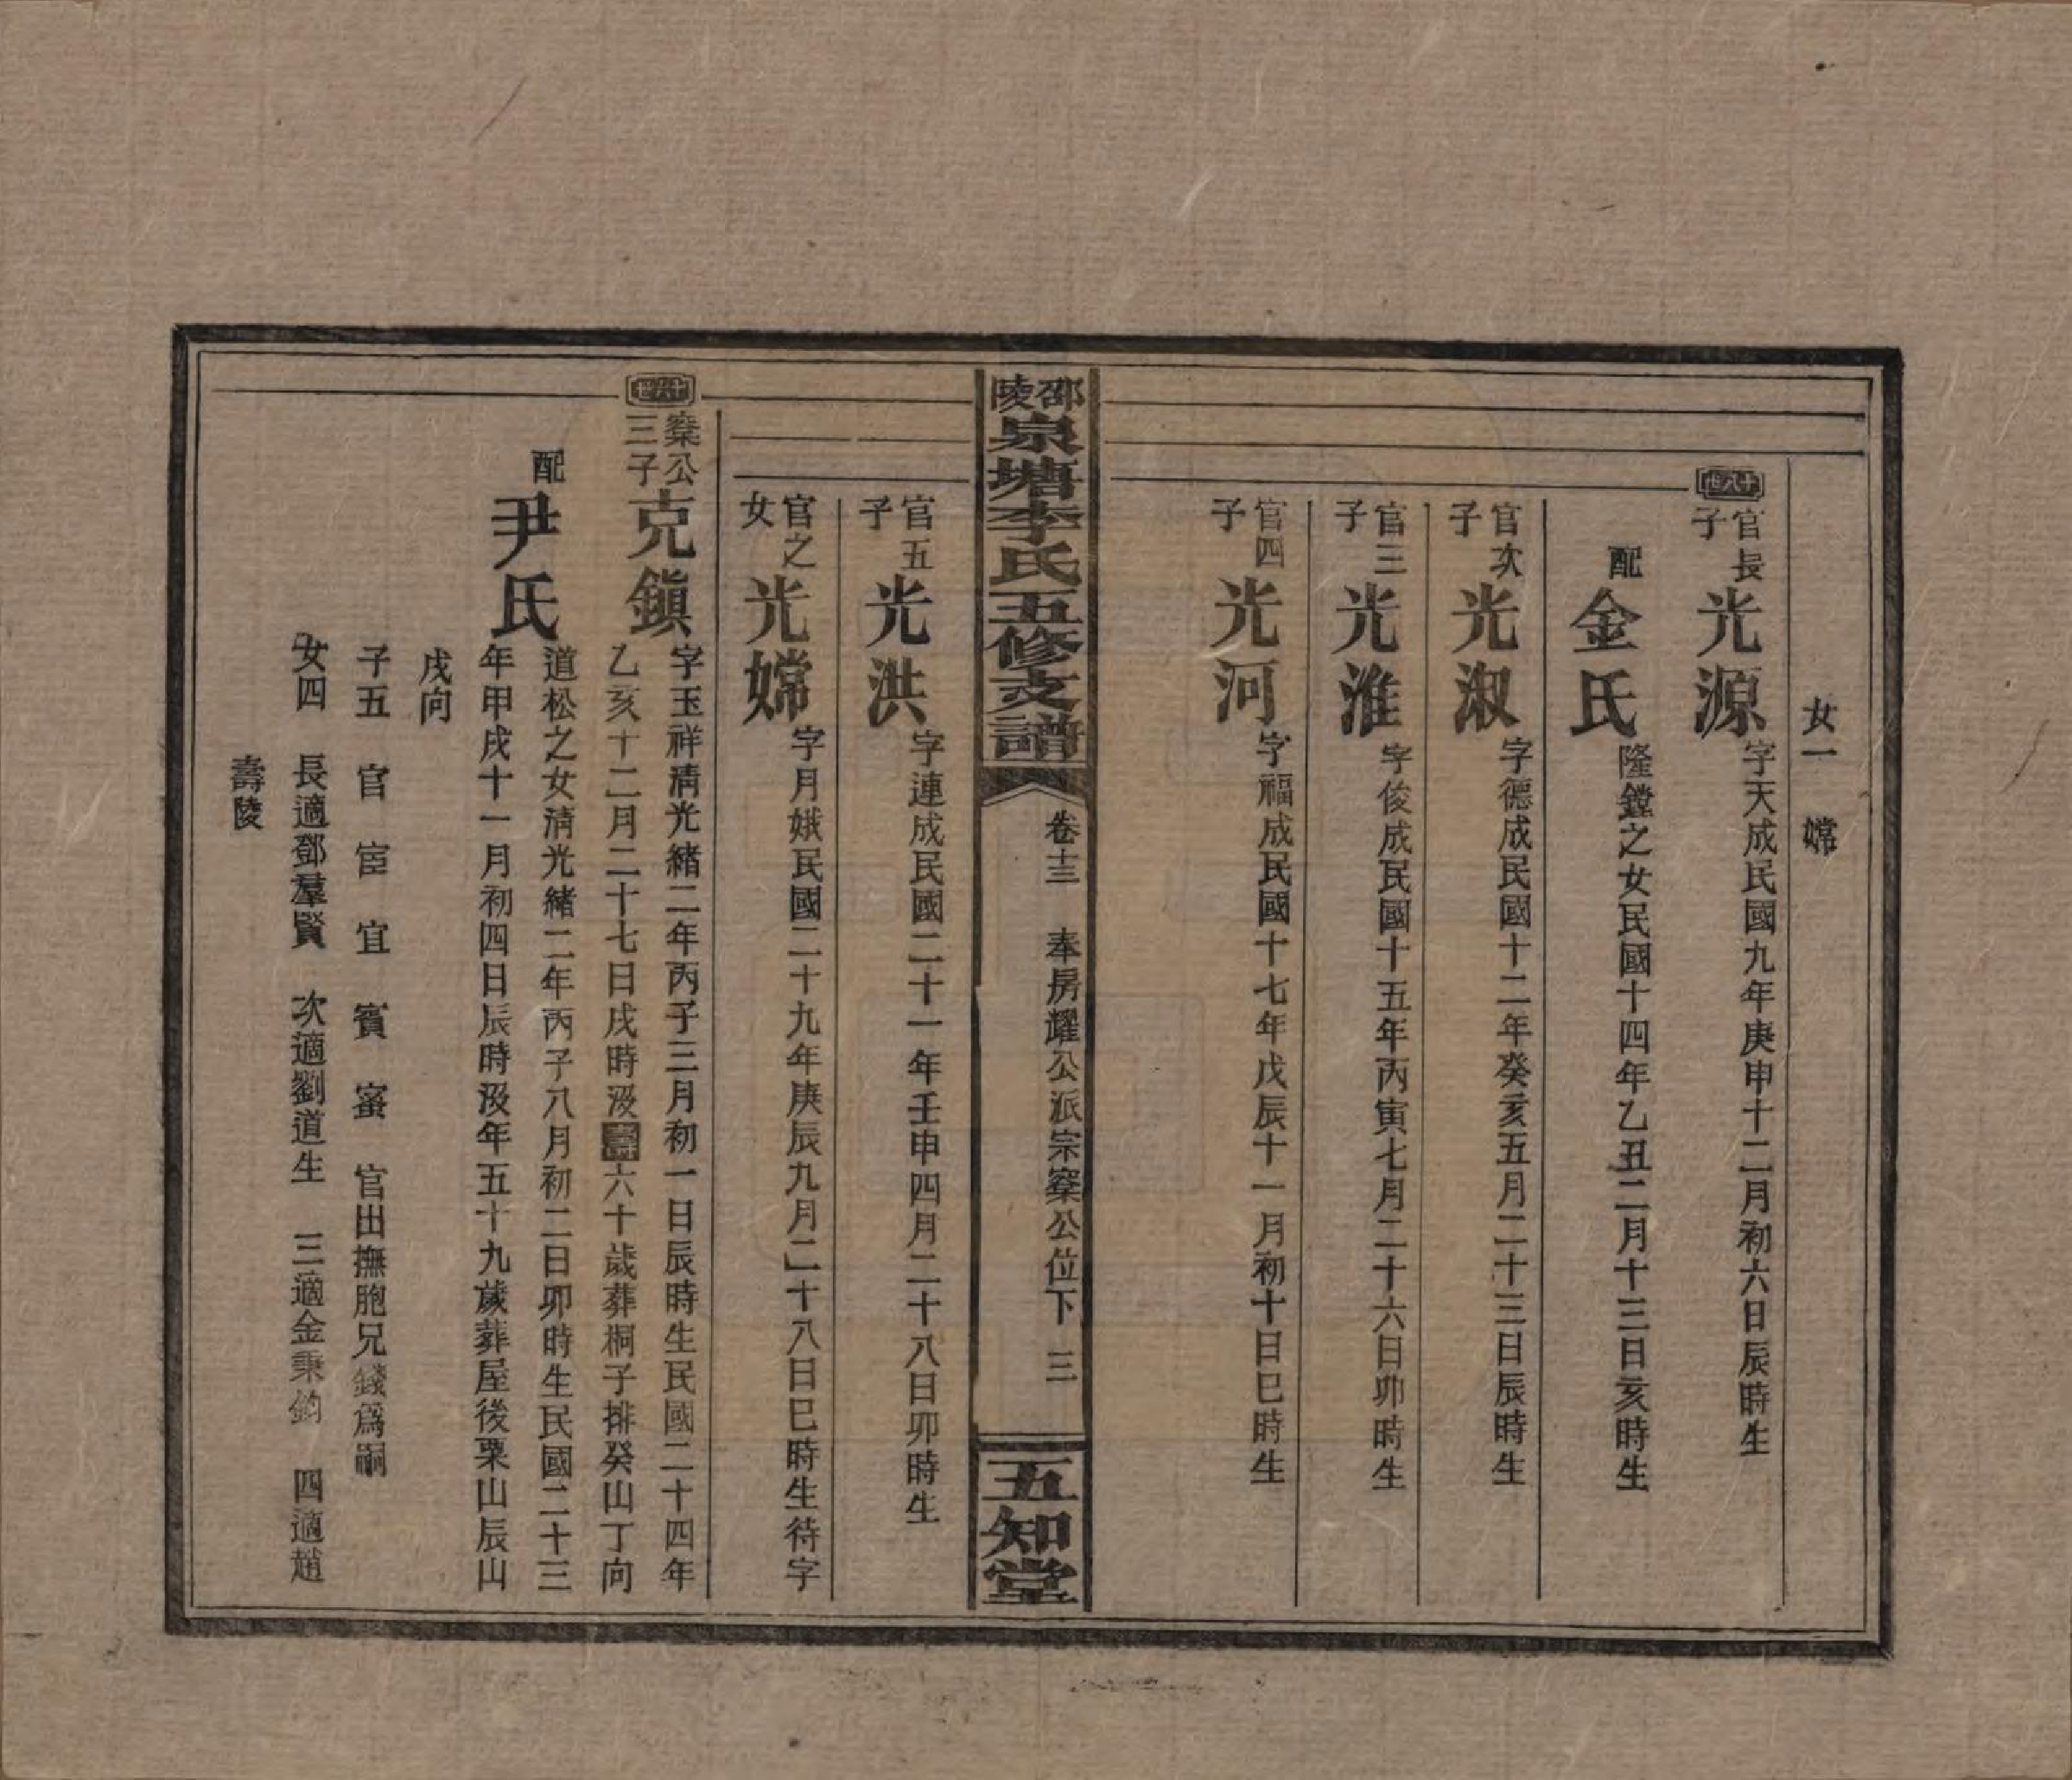 女一　嫦
十八世
官長子
光源
字天成民國九年庚申十二月初六日辰時生
配
金氏
隆鏜之女民國十四年乙丑二月十三日亥時生
官次子
光淑
字德成民國十二年癸亥五月二十三日辰時生
官三子
光淮
字俊成民國十五年丙寅七月二十六日卯時生
官四子
光河
字福成民國十七年戊辰十一月初十日巳時生
邵陵泉塘李氏五修支譜
卷十三　奉房耀公派宗粲公位下　三
五知堂
官五子
光洪
字連成民國二十一年壬申四月二十八日卯時生
官之女
光嫦
字月娥民國二十九年庚辰九月二十八日巳時生待字
十六世
粲公三子
克鎭
字玉祥清光緒二年丙子三月初一日辰時生民國二十四年
乙亥十二月二十七日戌時沒壽六十歲葬桐子排癸山丁向
配
尹氏
道松之女清光緒二年丙子八月初二日卯時生民國二十三
年甲戌十一月初四日辰時沒年五十九歲葬屋後栗山辰山
戌向
子五　官　宦　宜　賓　寗　官出撫胞兄錢爲嗣
女四　長適鄧羣賢　次適劉道生　三適金秉鈞　四適趙
壽陵